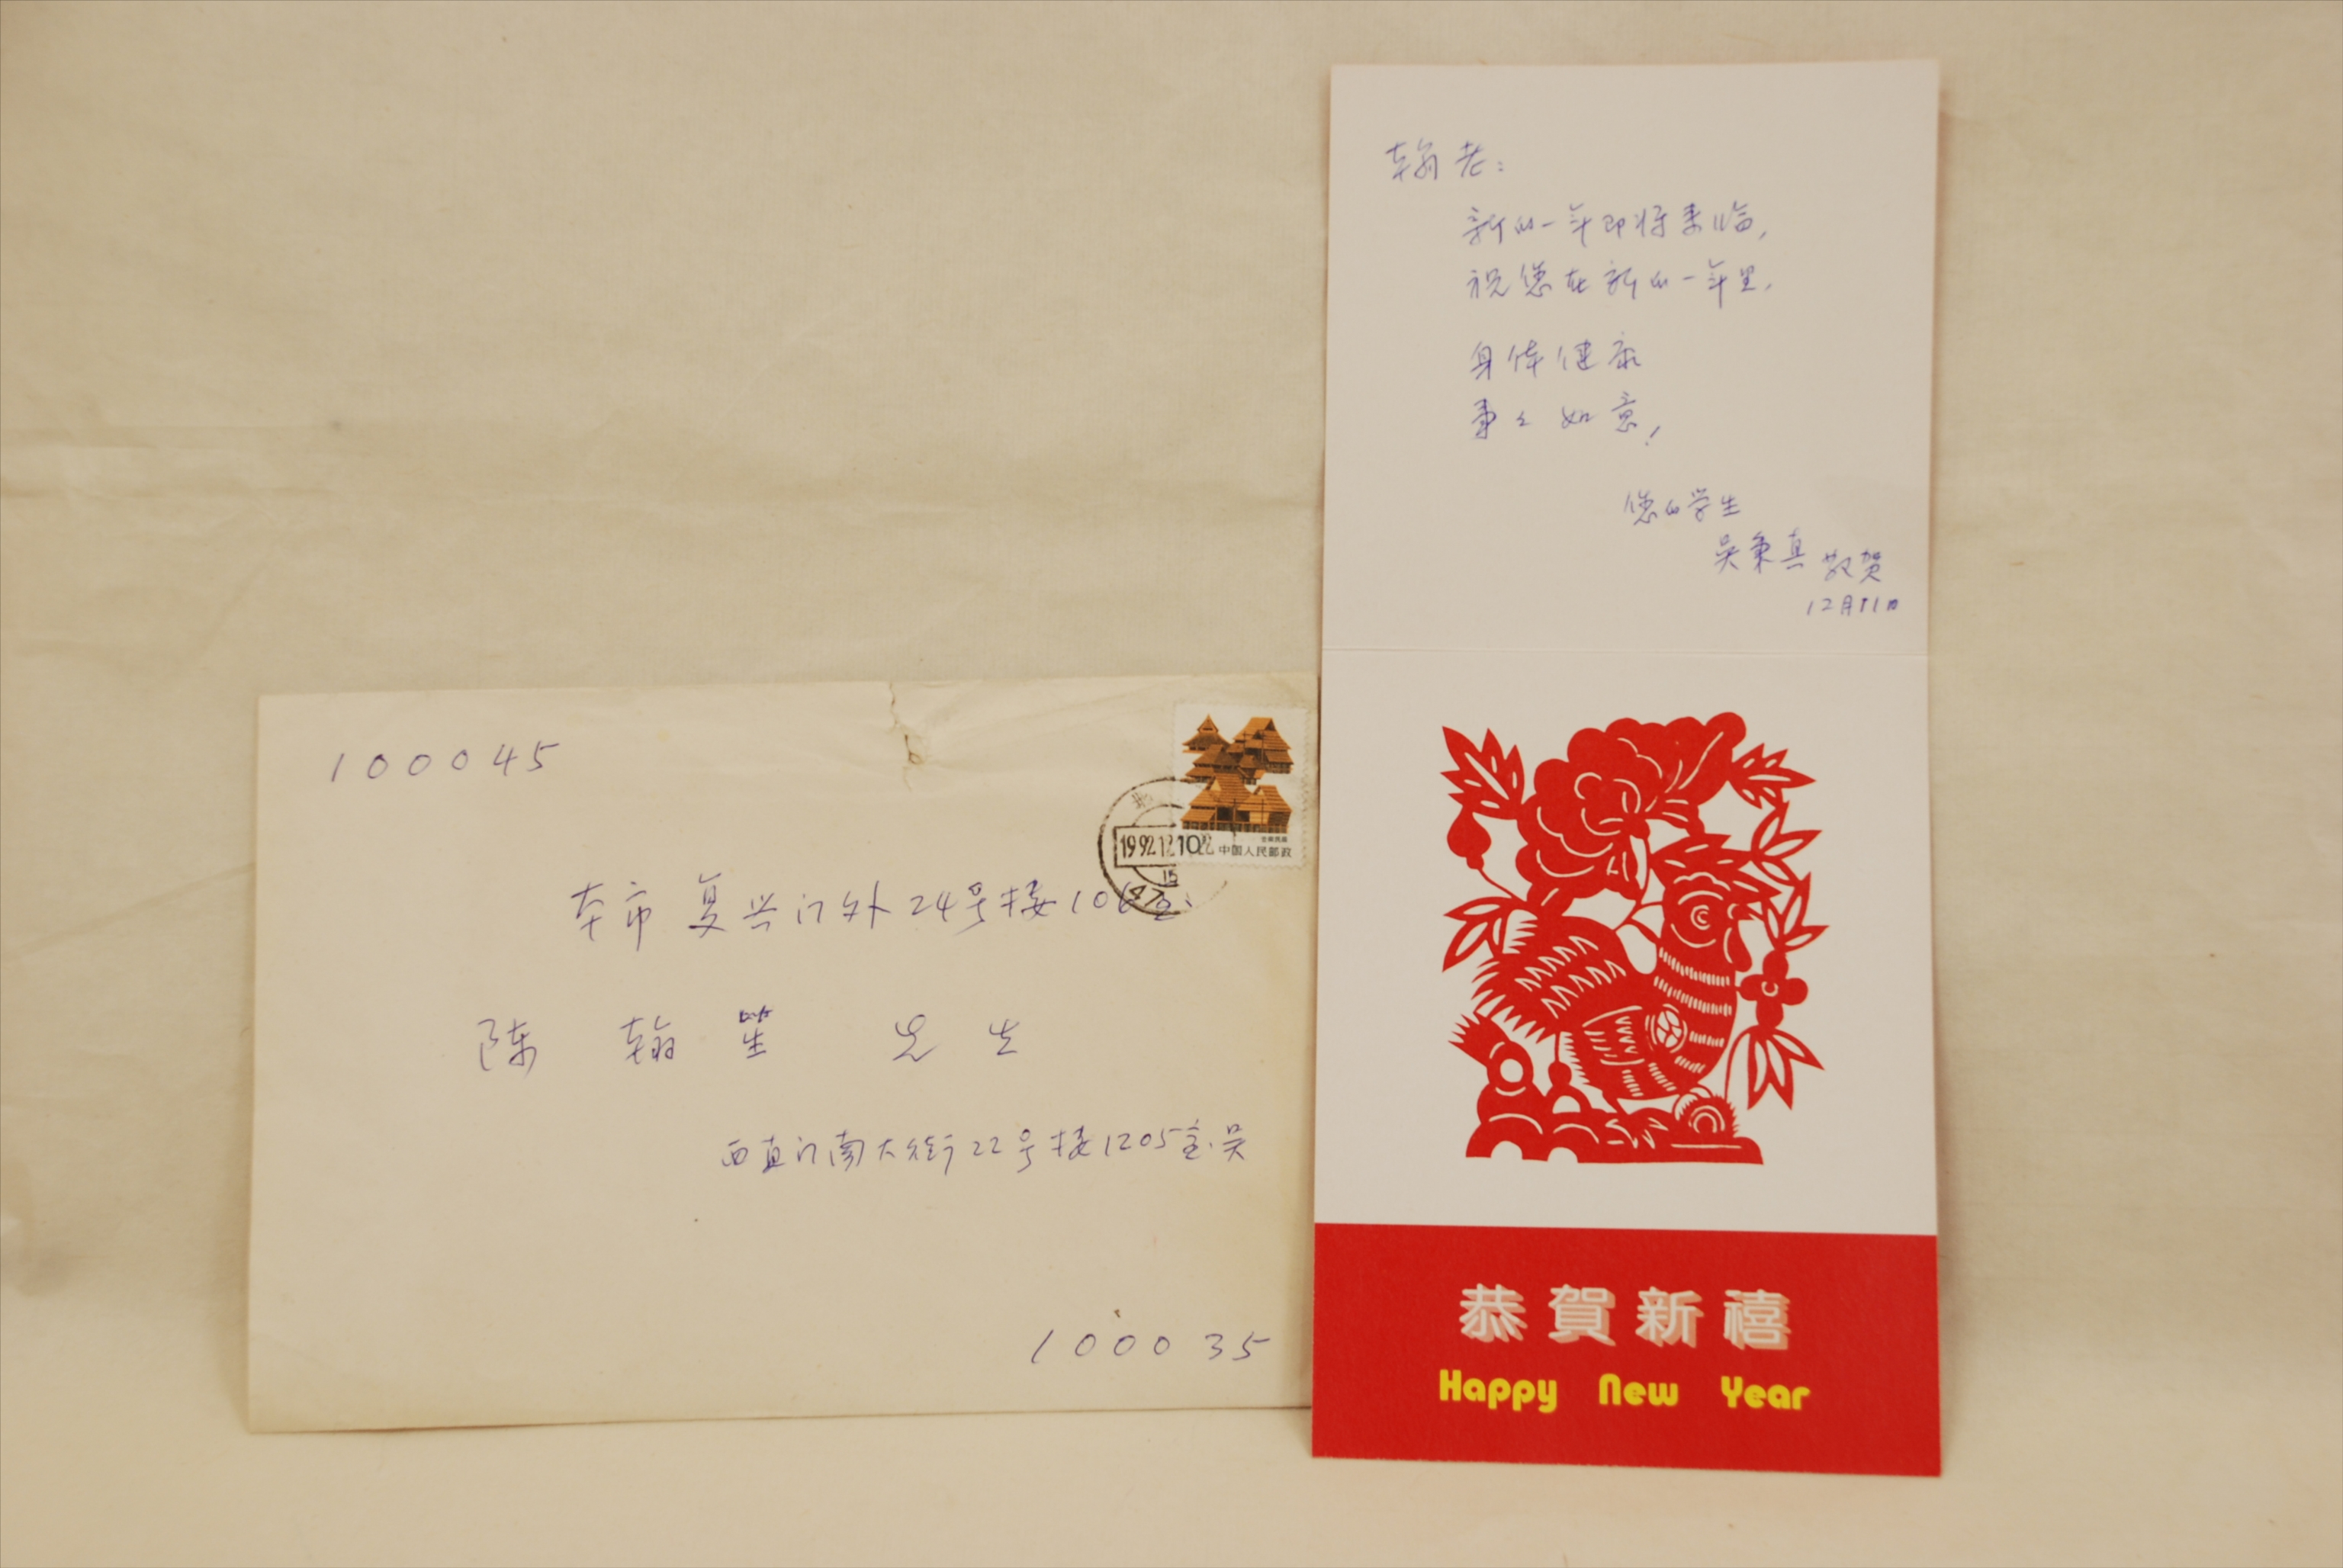 100045
本市复兴门外24号楼106室
陈翰笙 先生
西直门南大街22号楼1205室吴
100035
北
1992.12
15
10
中国人民邮政
翰老:
新的一年即将来临,
祝您在新的一年里,
身体健康
事々如意!
您的学生
吴秉真 敬贺
12月11日
恭賀新禧
Happy New Year